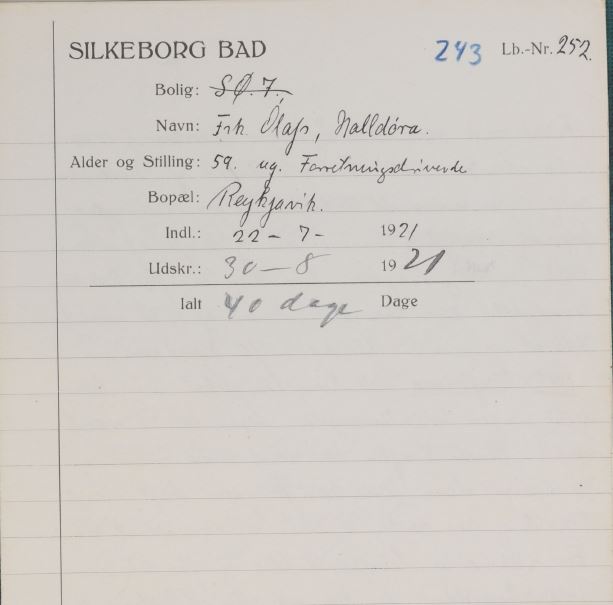 SILKEBORG BAD 243 Lb.-Nr. 252.
Bolig: SØ. 7.
Navn: Frk. Ólafs, Halldóra.
Alder og Stilling: 59. ug. Forretningsdrivende
Bopæl: Reykjavik.
Indl.: 22 - 7 - 1921
Udskr.: 30 - 8 1921
Ialt 40 dage Dage